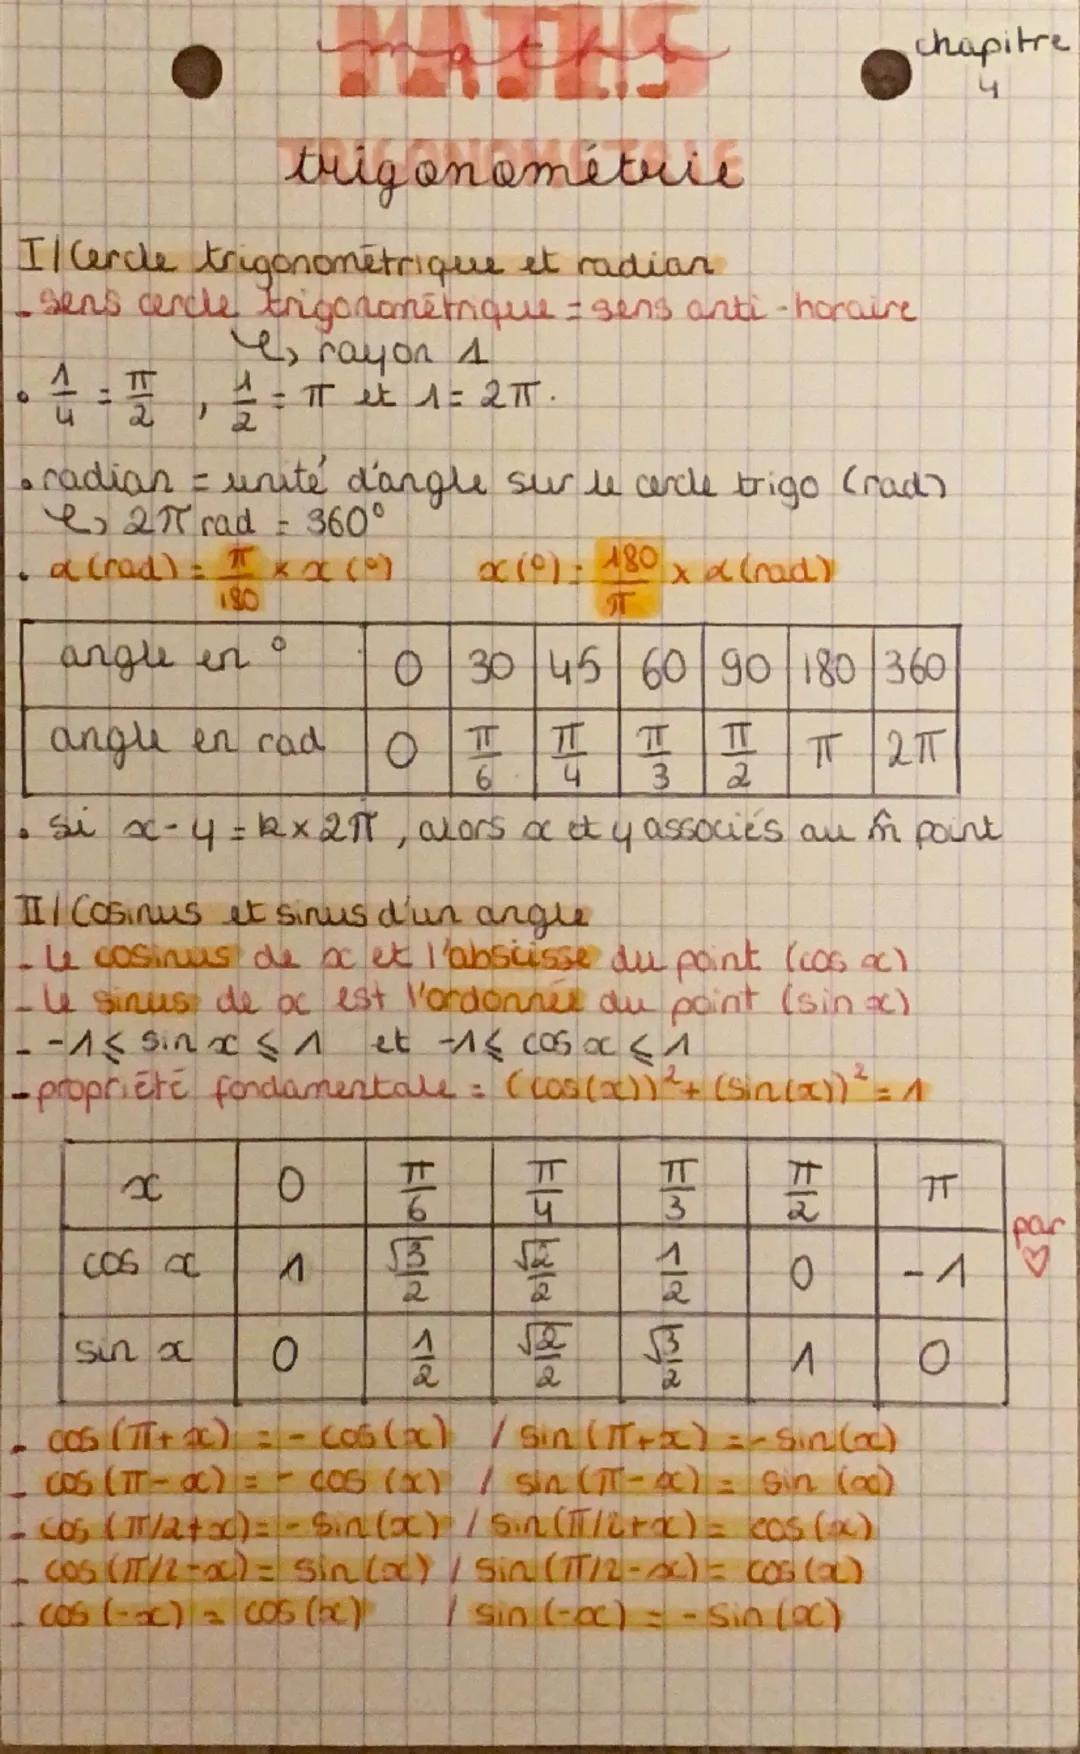 MATHS
maths
chapitre
4
TRIGONOMETRIE
trigonométrie
I/ Cercle trigonométrique et radian
- sens cercle trigonométrique = sens anti-horaire
↳ rayon 1
• 1/4 = π/2 , 1/2 = π et 1 = 2π.
• radian = unité d'angle sur le cercle trigo (rad)
↳ 2π rad = 360°
• α (rad) = π/180 × x (°)    x (°) = 180/π × α (rad)
angle en ° 0 30 45 60 90 180 360
angle en rad 0 π/6 π/4 π/3 π/2 π 2π
• si x-y = k × 2π, alors x et y associés au m̂ point
II/ Cosinus et sinus d'un angle
- Le cosinus de x et l'abscisse du point (cos x)
- Le sinus de x est l'ordonnée du point (sin x)
- -1 ⩽ sin x ⩽ 1 et -1 ⩽ cos x ⩽ 1
- propriété fondamentale = (cos(x))² + (sin(x))² = 1
x 0 π/6 π/4 π/3 π/2 π
cos x 1 √3/2 √2/2 1/2 0 -1
sin x 0 1/2 √2/2 √3/2 1 0
par ♡
- cos (π+x) = - cos (x) / sin (π+x) = - sin (x)
- cos (π-x) = - cos (x) / sin (π-x) = sin (x)
- cos (π/2+x) = - sin (x) / sin (π/2+x) = cos (x)
- cos (π/2-x) = sin (x) / sin (π/2-x) = cos (x)
- cos (-x) = cos (x) / sin (-x) = - sin (x)